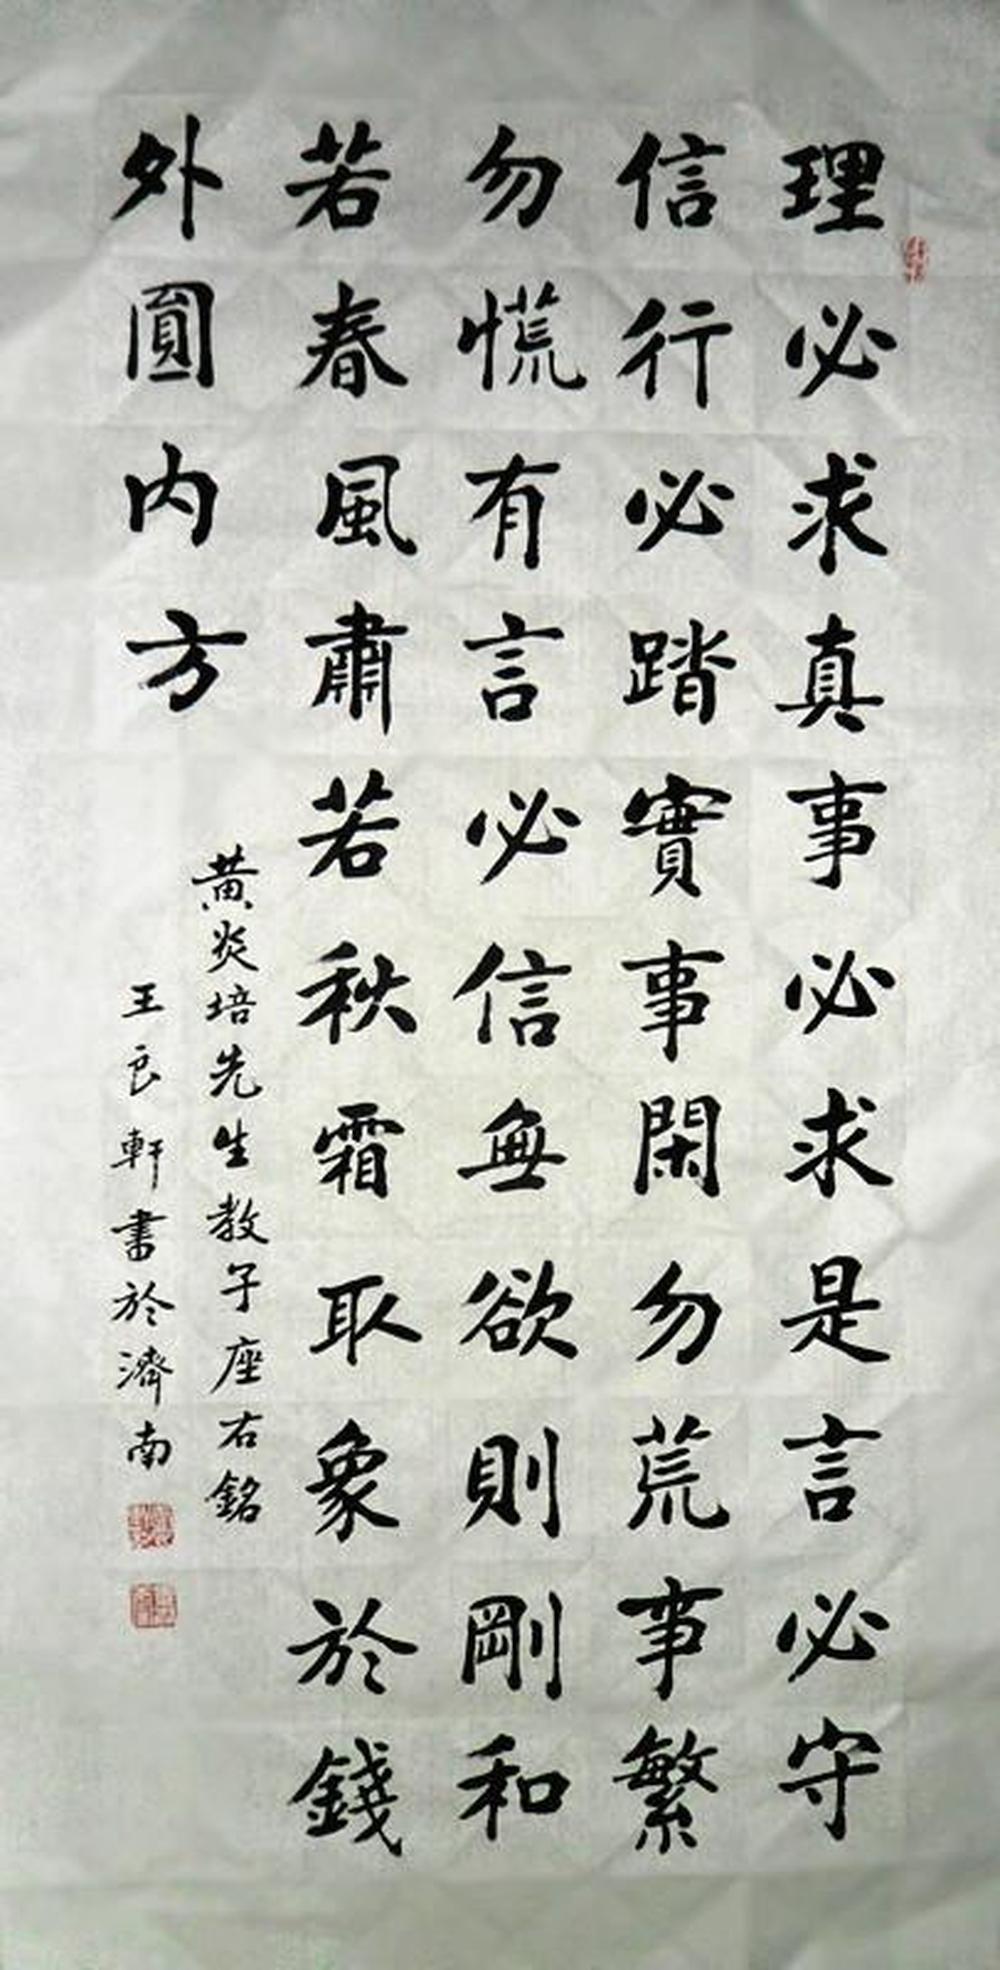 理必求真事必求是言必守
信行必踏實事閑勿荒事繁
勿慌有言必信無欲則剛和
若春風肅若秋霜取象於錢
外圓内方
黄炎培先生教子座右銘
王良軒書於濟南